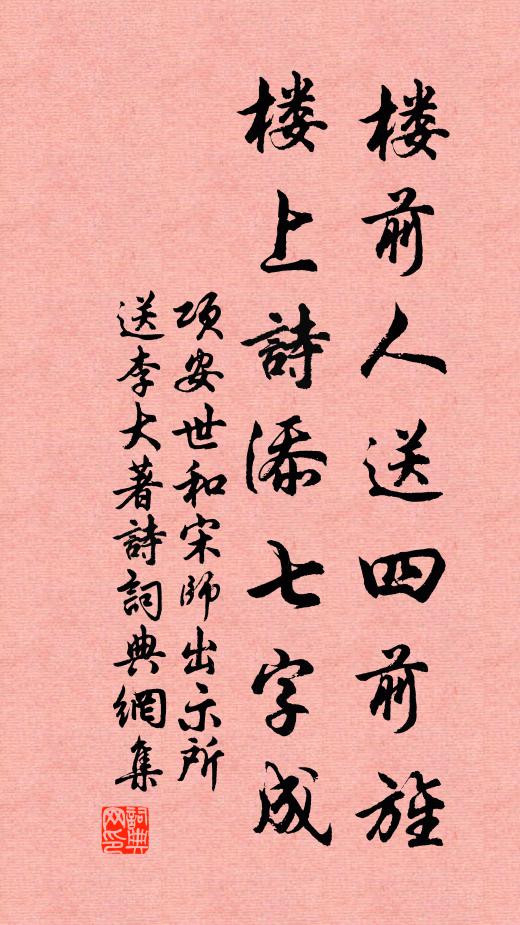 楼前人送四前旌
楼上詩添七字成
项安世和宋師出示所
送李大著詩詞典網集
詞典网印